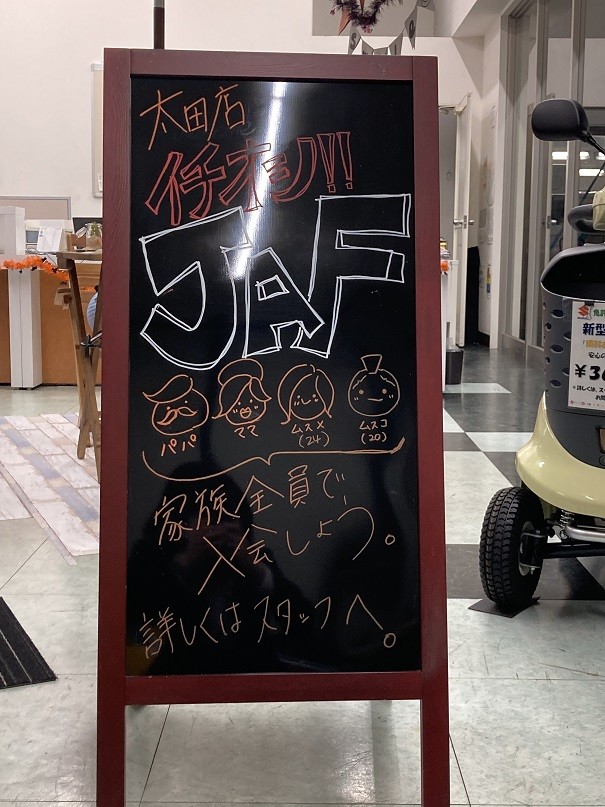 太田店
イチオシ!!
JAF
パパ
ママ
ムスメ
(24)
ムスコ
(20)
家族全員で、
入会しょう。
詳しくはスタッフへ。
新型